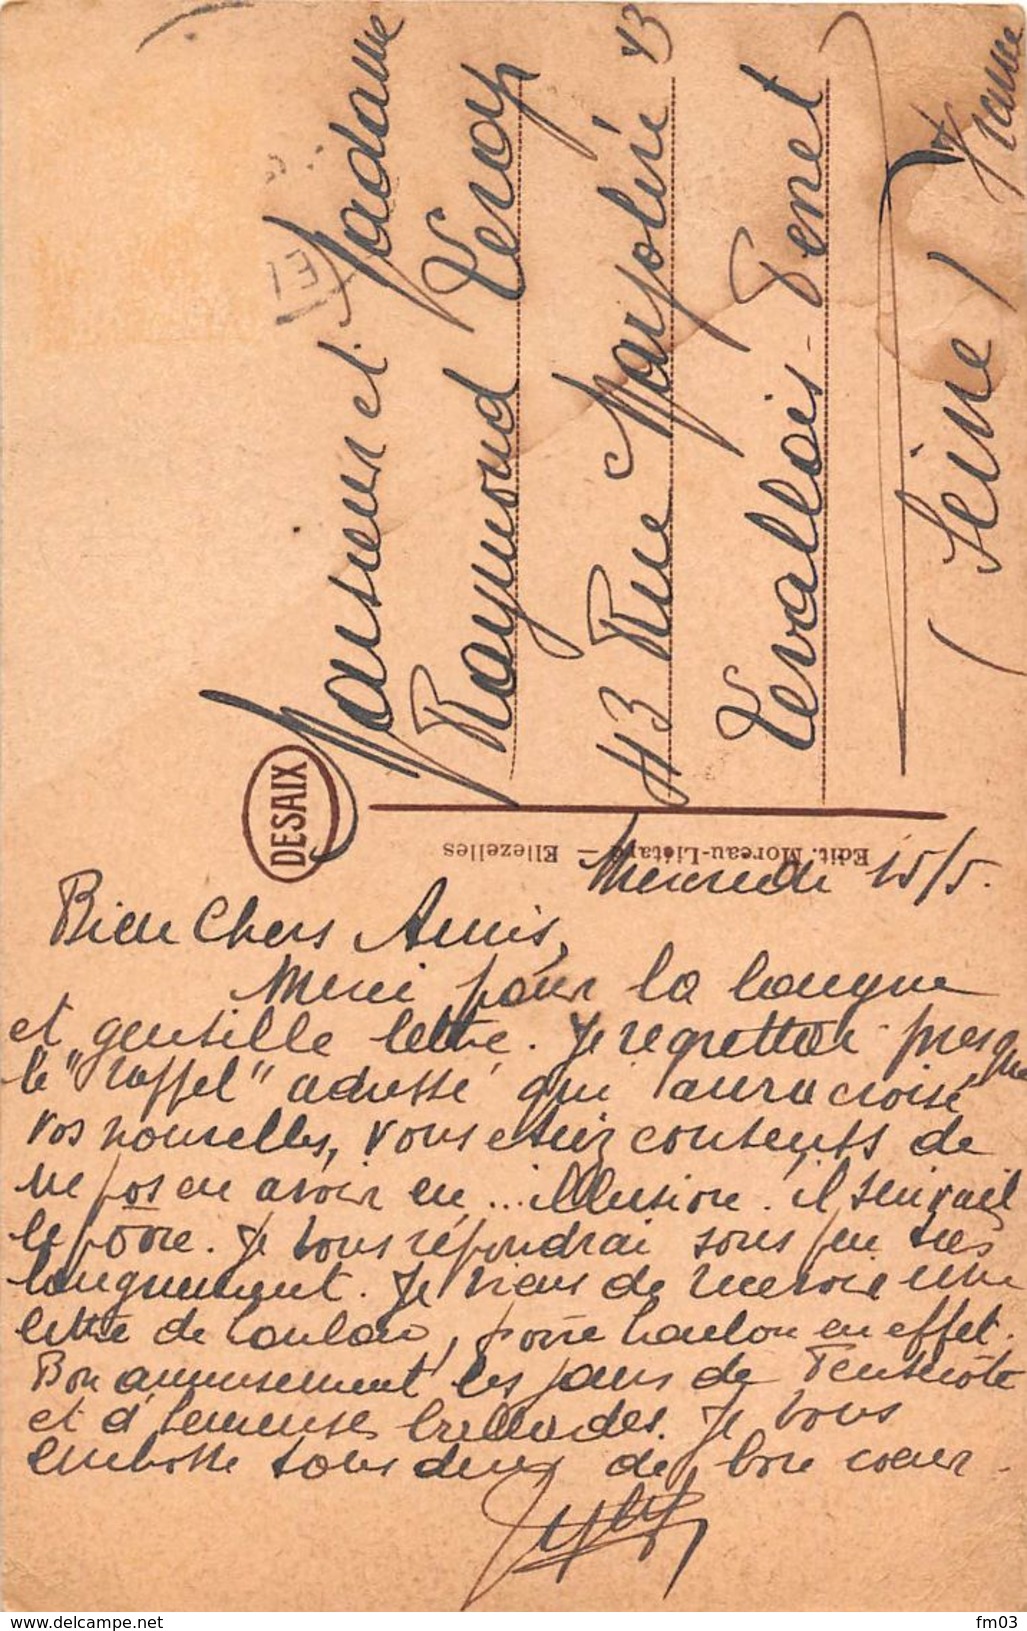 Monsieur et Madame
Raymond Leroy
43 Rue Marjolin 43
Levallois-Perret
(Seine) France
DESAIX
Edit. Moreau-Liétard — Ellezelles
Mercredi 15/5.
Bien Chers Amis,
Merci pour la longue
et gentille lettre. Je regrettai presque
le "rappel" adressé qui aura croisé
vos nouvelles, vous étiez contents de
ne pas en avoir en ... illusion. il
le Je vous répondrai sous peu très
longuement. Je viens de recevoir une
lettre de Loulou, Loulou en effet.
Bon amusement les jours de Pentecôte
et d'
embrasse tous deux de bon cœur.
www.delcampe.net
fm03